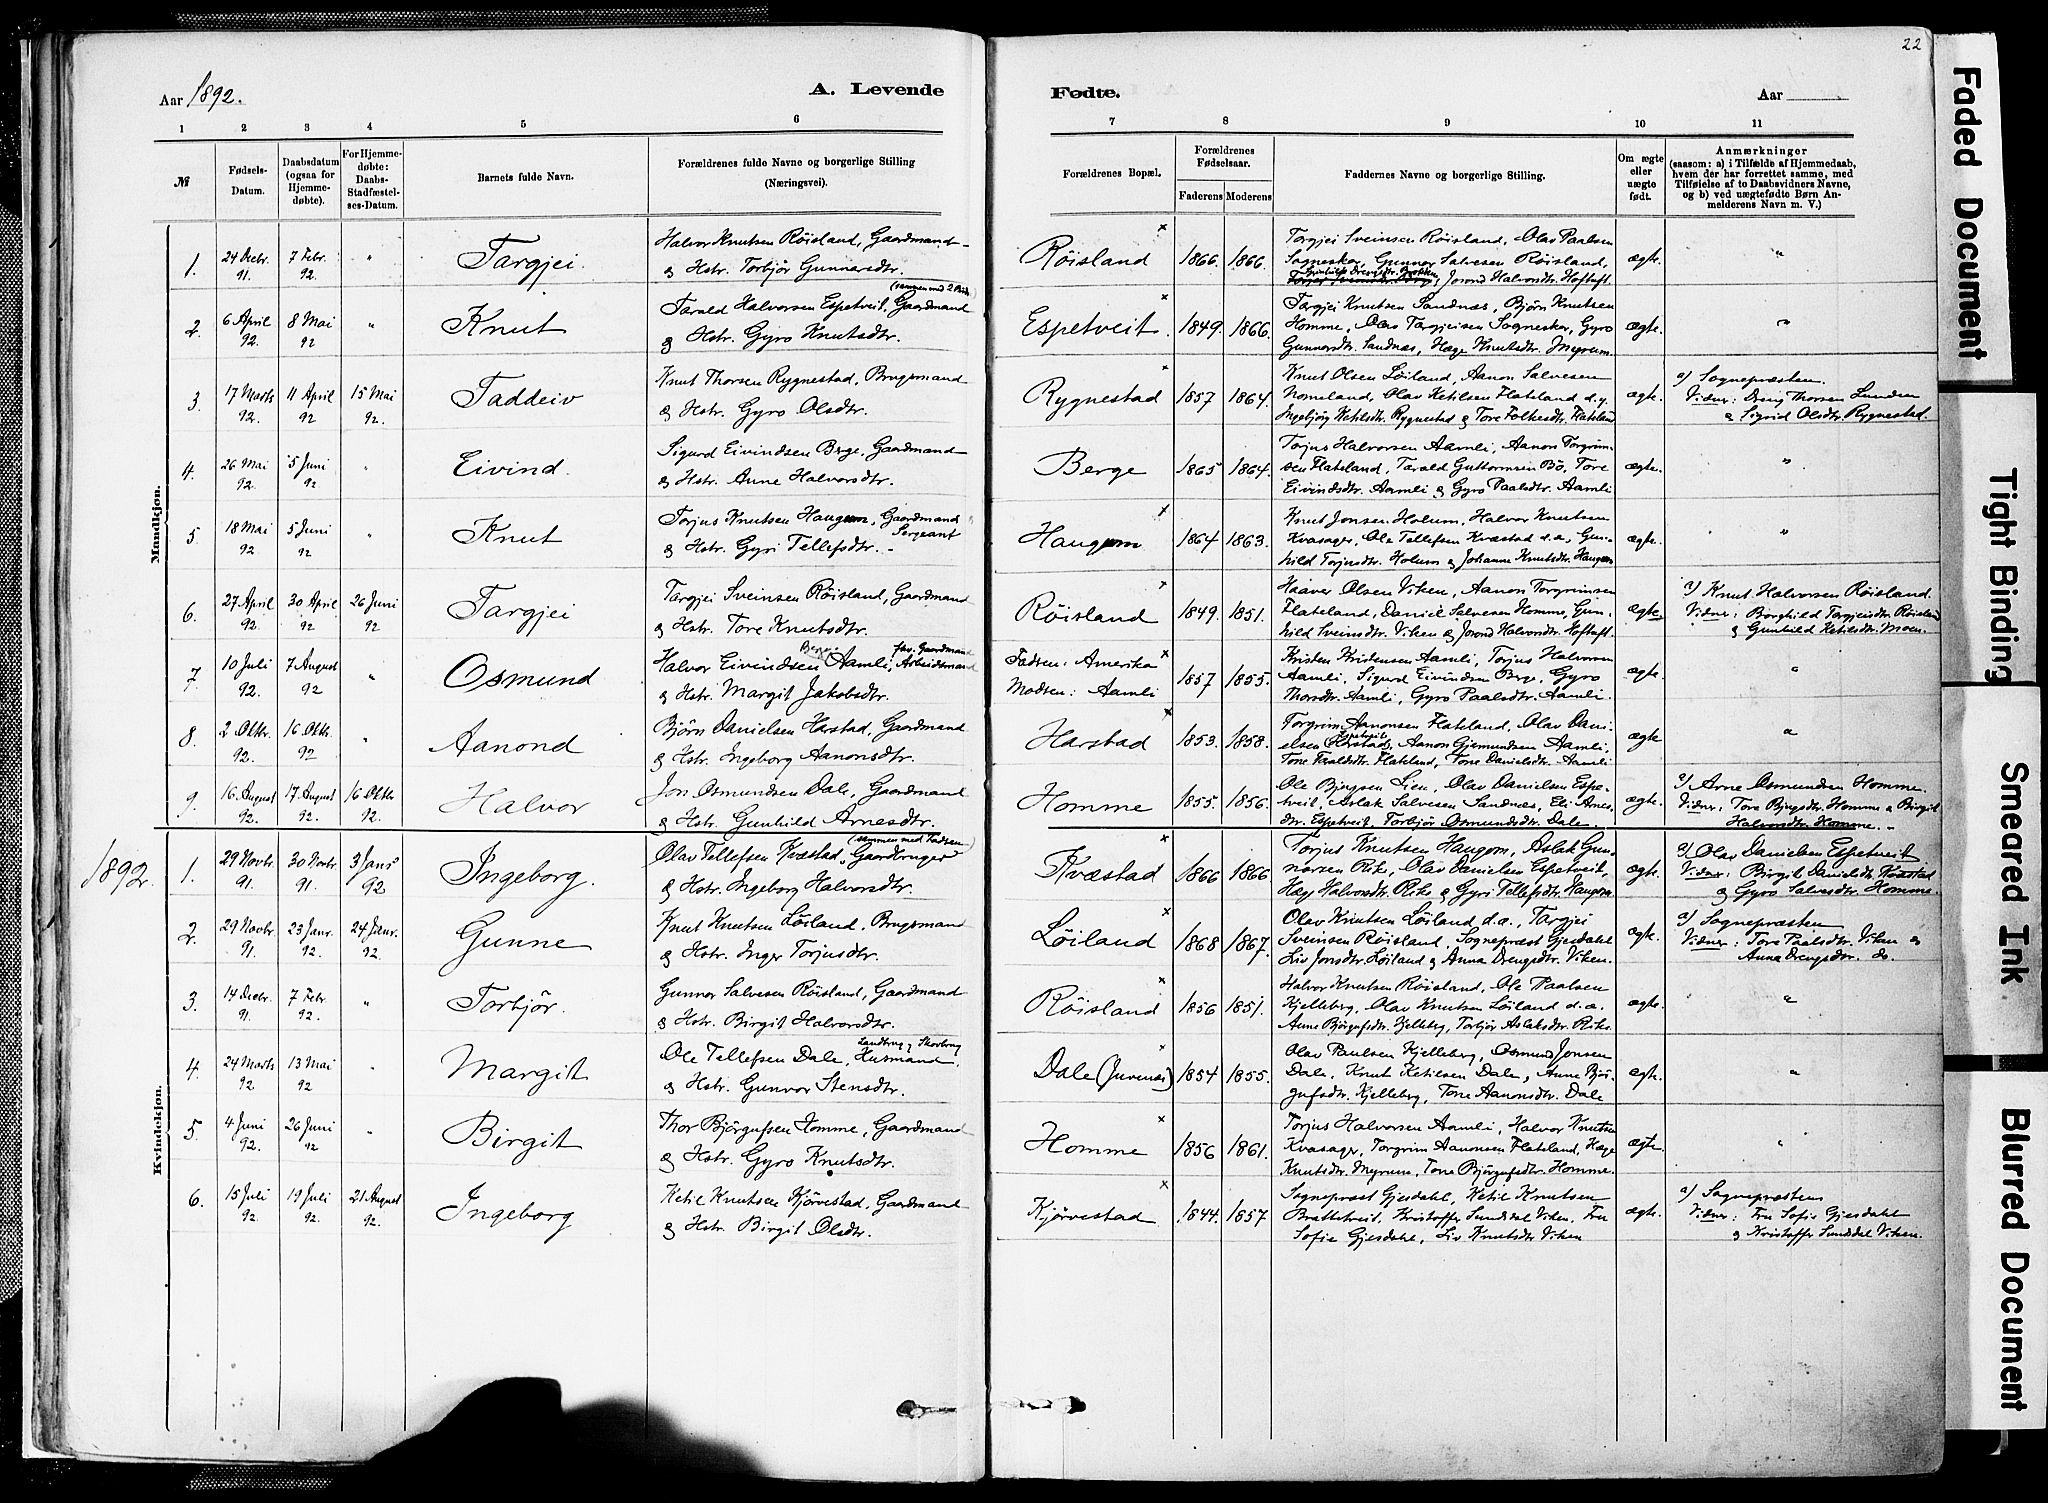 22
Aar 1892.
A. Levende
Fødte.
Aar
1 2 3 4 5 6 7 8 9 10 11
№
Fødsels-
Datum.
Daabsdatum
(ogsaa for
Hjemme-
døbte).
For Hjemme-
døbte:
Daabs-
Stadfæstel-
ses-Datum.
Barnets fulde Navn.
Forældrenes fulde Navne og borgerlige Stilling
(Næringsvei).
Forældrenes Bopæl.
Forældrenes
Fødselsaar.
Faderens Moderens
Faddernes Navne og borgerlige Stilling.
Om ægte
eller
uægte
født.
Anmærkninger
(saasom: a) i Tilfælde af Hjemmedaab,
hvem der har forrettet samme, med
Tilføielse af to Daabsvidners Navne,
og b) ved uægtefødte Børn An-
melderens Navn m. V.)
Mandkjøn.
1. 24 Decbr. 91. 7 Febr. 92. " Targjei.
Halvor Knutsen Røisland, Gaardmand
& Hstr. Torbjør Gunnarsdtr.
Røisland 1866. 1866.
Torgjei Sveinsen Røisland, Olav Paalsen
Sogneskar, Gunnar Salvesen Røisland,
Jorond Halvorsdtr. Hoftuft.
ægte. "
2. 6 April 92. 8 Mai 92 " Knut
Tarald Halvorsen Espetveit, Gaardmand
& Hstr. Gyro Knutsdtr.
Espetveit. 1849. 1866.
Targjei Knutsen Sandnæs, Bjørn Knutsen
Homme, Olav Targjeisen Sogneskar, Gyro
Gunnarsdtr. Sandnæs, Hæge Knutsdtr. Myrum.
ægte. "
3. 17 Marts 92. 11 April 92 15 Mai 92. Taddeiv
Knut Thorsen Rygnestad, Brugsmand
& Hstr. Gyro Olsdtr.
Rygnestad 1857 1864.
Knut Olsen Løiland, Aanon Salvesen
Nomeland, Olav Ketilsen Flateland d.y.
Ingebjørg Ketilsdtr. Rygnestad & Tore Folkesdtr. Flateland
ægte.
a) Sognepræsten.
Vidner: Dreng Thorsen Lunden
& Sigrid Olsdtr. Rygnestad.
4. 26 Mai 92. 5 Juni 92 " Eivind.
Sigurd Eivindsen Berge, Gaardmand
& Hstr. Anne Halvorsdtr.
Berge 1865 1864.
Torjus Halvorsen Aamli, Aanon Torgrim-
sen Flateland, Tarald Guttormsen Bø, Tore
Eivindsdtr. Aamli & Gyro Paalsdtr. Aamli
ægte. "
5. 18 Mai 92 5 Juni 92 " Knut
Torjus Knutsen Haugum, Gaardmand
Sergeant
& Hstr. Gyri Tellefsdtr.
Haugum 1864 1863.
Knut Jonsen Holum, Halvor Knutsen
Kvasager, Ole Tellefsen Kvæstad d.æ., Gun-
hild Torjusdtr. Holum & Johanne Knutsdtr. Haugum
ægte. "
6. 27 April 92. 30 April 92 26 Juni 92 Targjei
Targjei Sveinsen Røisland, Gaardmand
& Hstr. Tore Knutsdtr.
Røisland 1849. 1851.
Haaver Olsen Viken, Aanon Torgrimsen
Flateland, Daniel Salvesen Homme, Gun-
hild Sveinsdtr. Viken & Jorond Halvorsdtr. Hoftuft.
ægte
a) Knut Halvorsen Røisland.
Vidner: Borghild Targjeisdtr. Røisland
& Gunhild Ketilsdtr. Moen.
7. 10 Juli 92. 7 August 92 " Osmund
Halvor Eivindsen Aamli, Arbeidsmand
& Hstr. Margit Jakobsdtr.
Fadren: Amerika
Modren: Aamli
1857 1855.
Kristen Kristensen Aamli, Torjus Halvorsen
Aamli, Sigurd Eivindsen Berge, Gyro
Thorsdtr. Aamli, Gyro Paalsdtr. Aamli.
ægte. "
8. 2 Oktbr. 92. 16 Oktbr. 92 " Aanond
Bjørn Danielsen Harstad, Gaardmand
& Hstr. Ingeborg Aanonsdtr.
Harstad 1853. 1858.
Torgrim Aanonsen Flateland, Olav Dani-
elsen Espetveit, Aanon Gjermundsen Aamli,
Tone Taraldsdtr. Flateland, Tone Danielsdtr. Aamli
ægte "
9. 16. August 92. 17. August 92. 16 Oktbr 92. Halvor
Jon Osmundsen Dale, Gaardmand
& Hstr. Gunhild Arnesdtr.
Homme 1855. 1856.
Ole Bjugsen Lien, Olav Danielsen Espe-
tveit, Aslak Salvesen Sandnæs, Eli Arnes-
dtr. Espetveit, Torbjør Osmundsdtr. Dale.
ægte.
a) Arne Osmundsen Homme.
Vidner: Tore Bjugsdtr. Homme & Birgit
Halvorsdtr. Homme.
1892.
Kvindekjøn.
1. 29 Novbr. 91. 30 Novbr. 91. 3 Janr. 92 Ingeborg.
Olav Tellefsen Kvæstad, Gaardbruger
& Hstr. Ingeborg Halvorsdtr.
Kvæstad 1866 1866
Torjus Knutsen Haugum, Aslak Gun-
narsen Rike, Olav Danielsen Espetveit,
Hæge Halvorsdtr. Rike & Gyri Tellefsdtr. Haugum
ægte.
a) Olav Danielsen Espetveit.
Vidner: Birgit Danielsdtr. Kvæstad
& Gyro Salvesdtr. Homme.
2. 29 Novbr. 91. 23 Janr. 92. 24 Janr. 92. Gunne
Knut Knutsen Løiland, Brugsmand
& Hstr. Inger Torjusdtr.
Løiland 1868 1867.
Olav Knutsen Løiland d.æ., Targjei
Sveinsen Røisland, Sognepræst Gjesdahl
Liv Jonsdtr. Løiland & Anna Drengsdtr. Viken.
ægte.
a) Sognepræsten
Vidner: Tore Paalsdtr. Viken &
Anna Drengsdtr. do.
3. 14 Decbr. 91. 7 Febr. 92. " Torbjør.
Gunnar Salvesen Røisland, Gaardmand
& Hstr. Birgit Halvorsdtr.
Røisland 1856 1851.
Halvor Knutsen Røisland, Ole Paalsen
Kjelleberg, Olav Knutsen Løiland d.æ.
Anne Bjørgufsdtr. Kjelleberg, Torbjør Aslaksdtr. Rike.
ægte. "
4. 24 Marts 92 13 Mai 92 " Margit
Landbrug & Skovbrug
Ole Tellefsen Dale, Husmand.
& Hstr. Gunvor Stensdtr.
Dale (Juvenes) 1854 1855.
Olav Paulsen Kjelleberg, Osmund Jonsen
Dale, Knut Ketilsen Dale, Anne Bjør-
gufsdtr. Kjelleberg, Tone Aanonsdtr. Dale
ægte. "
5. 4 Juni 92. 26 Juni 92 " Birgit
Thor Bjørgufsen Homme, Gaardmand
& Hstr. Gyro Knutsdtr.
Homme 1856 1861.
Torjus Halvorsen Aamli, Halvor Knutsen
Kvasager, Torgrim Aanonsen Flateland, Hæge
Knutsdtr. Myrum, Tone Bjørgufsdtr. Homme.
ægte. "
6. 15 Juli 92. 19 Juli 92. 21 August 92. Ingeborg
Ketil Knutsen Kjørvestad, Gaardmand
& Hstr. Birgit Olsdtr.
Kjørvestad 1844. 1857
Sognepræst Gjesdahl, Ketil Knutsen
Brattetveit, Kristoffer Sundsdal Viken, Fru
Sofie Gjesdahl, Liv Knutsdtr Viken
ægte.
a) Sognepræsten
Vidner: Fru Sofie Gjesdahl
& Kristoffer Sundsdal Viken.
Faded Document
Tight Binding
Smeared Ink
Blurred Document